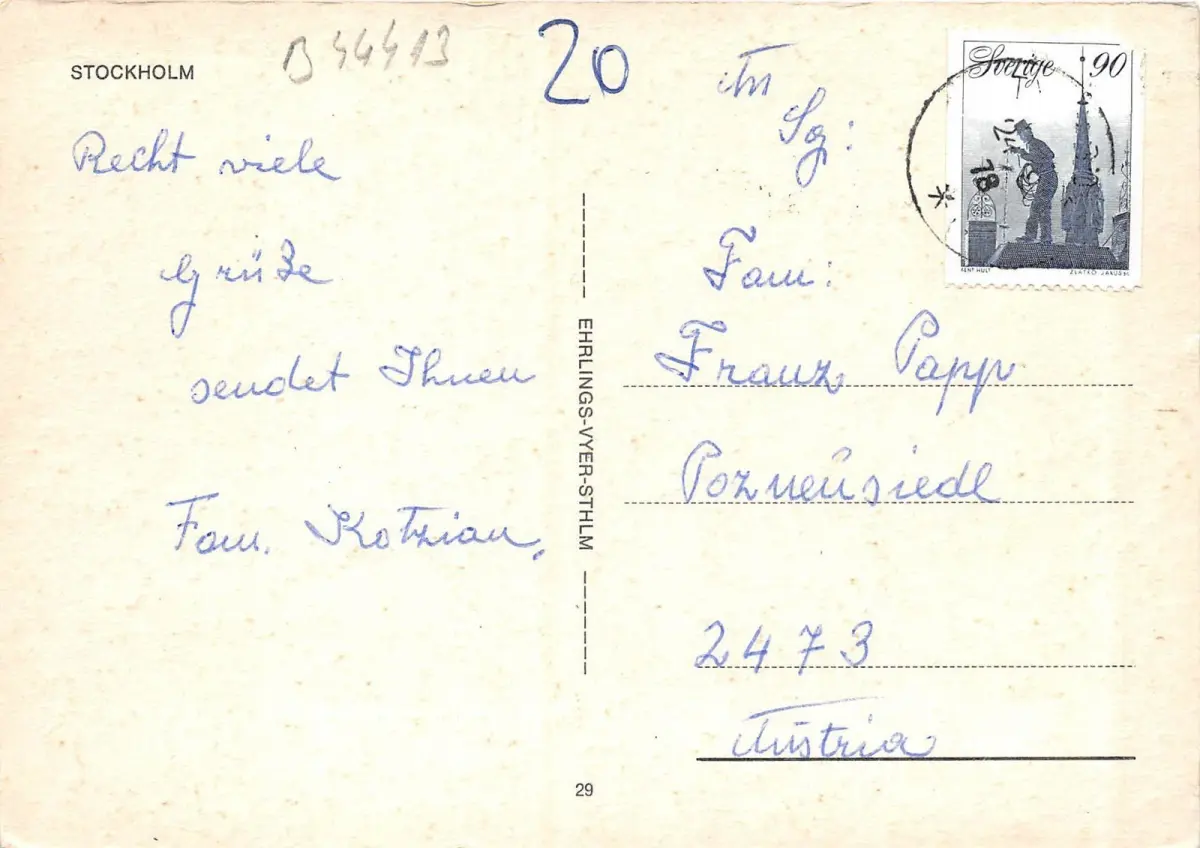 STOCKHOLM
B 44413
20
Recht viele
Grüße
sendet Ihnen
Fam. Kotzian.
EHRLINGS-VYER-STHLM
29
An
Sg:
Fam:
Franz Papp
Pozneusiedl
2473
Austria
Sverige 90
ZLATKO JAKUS
78